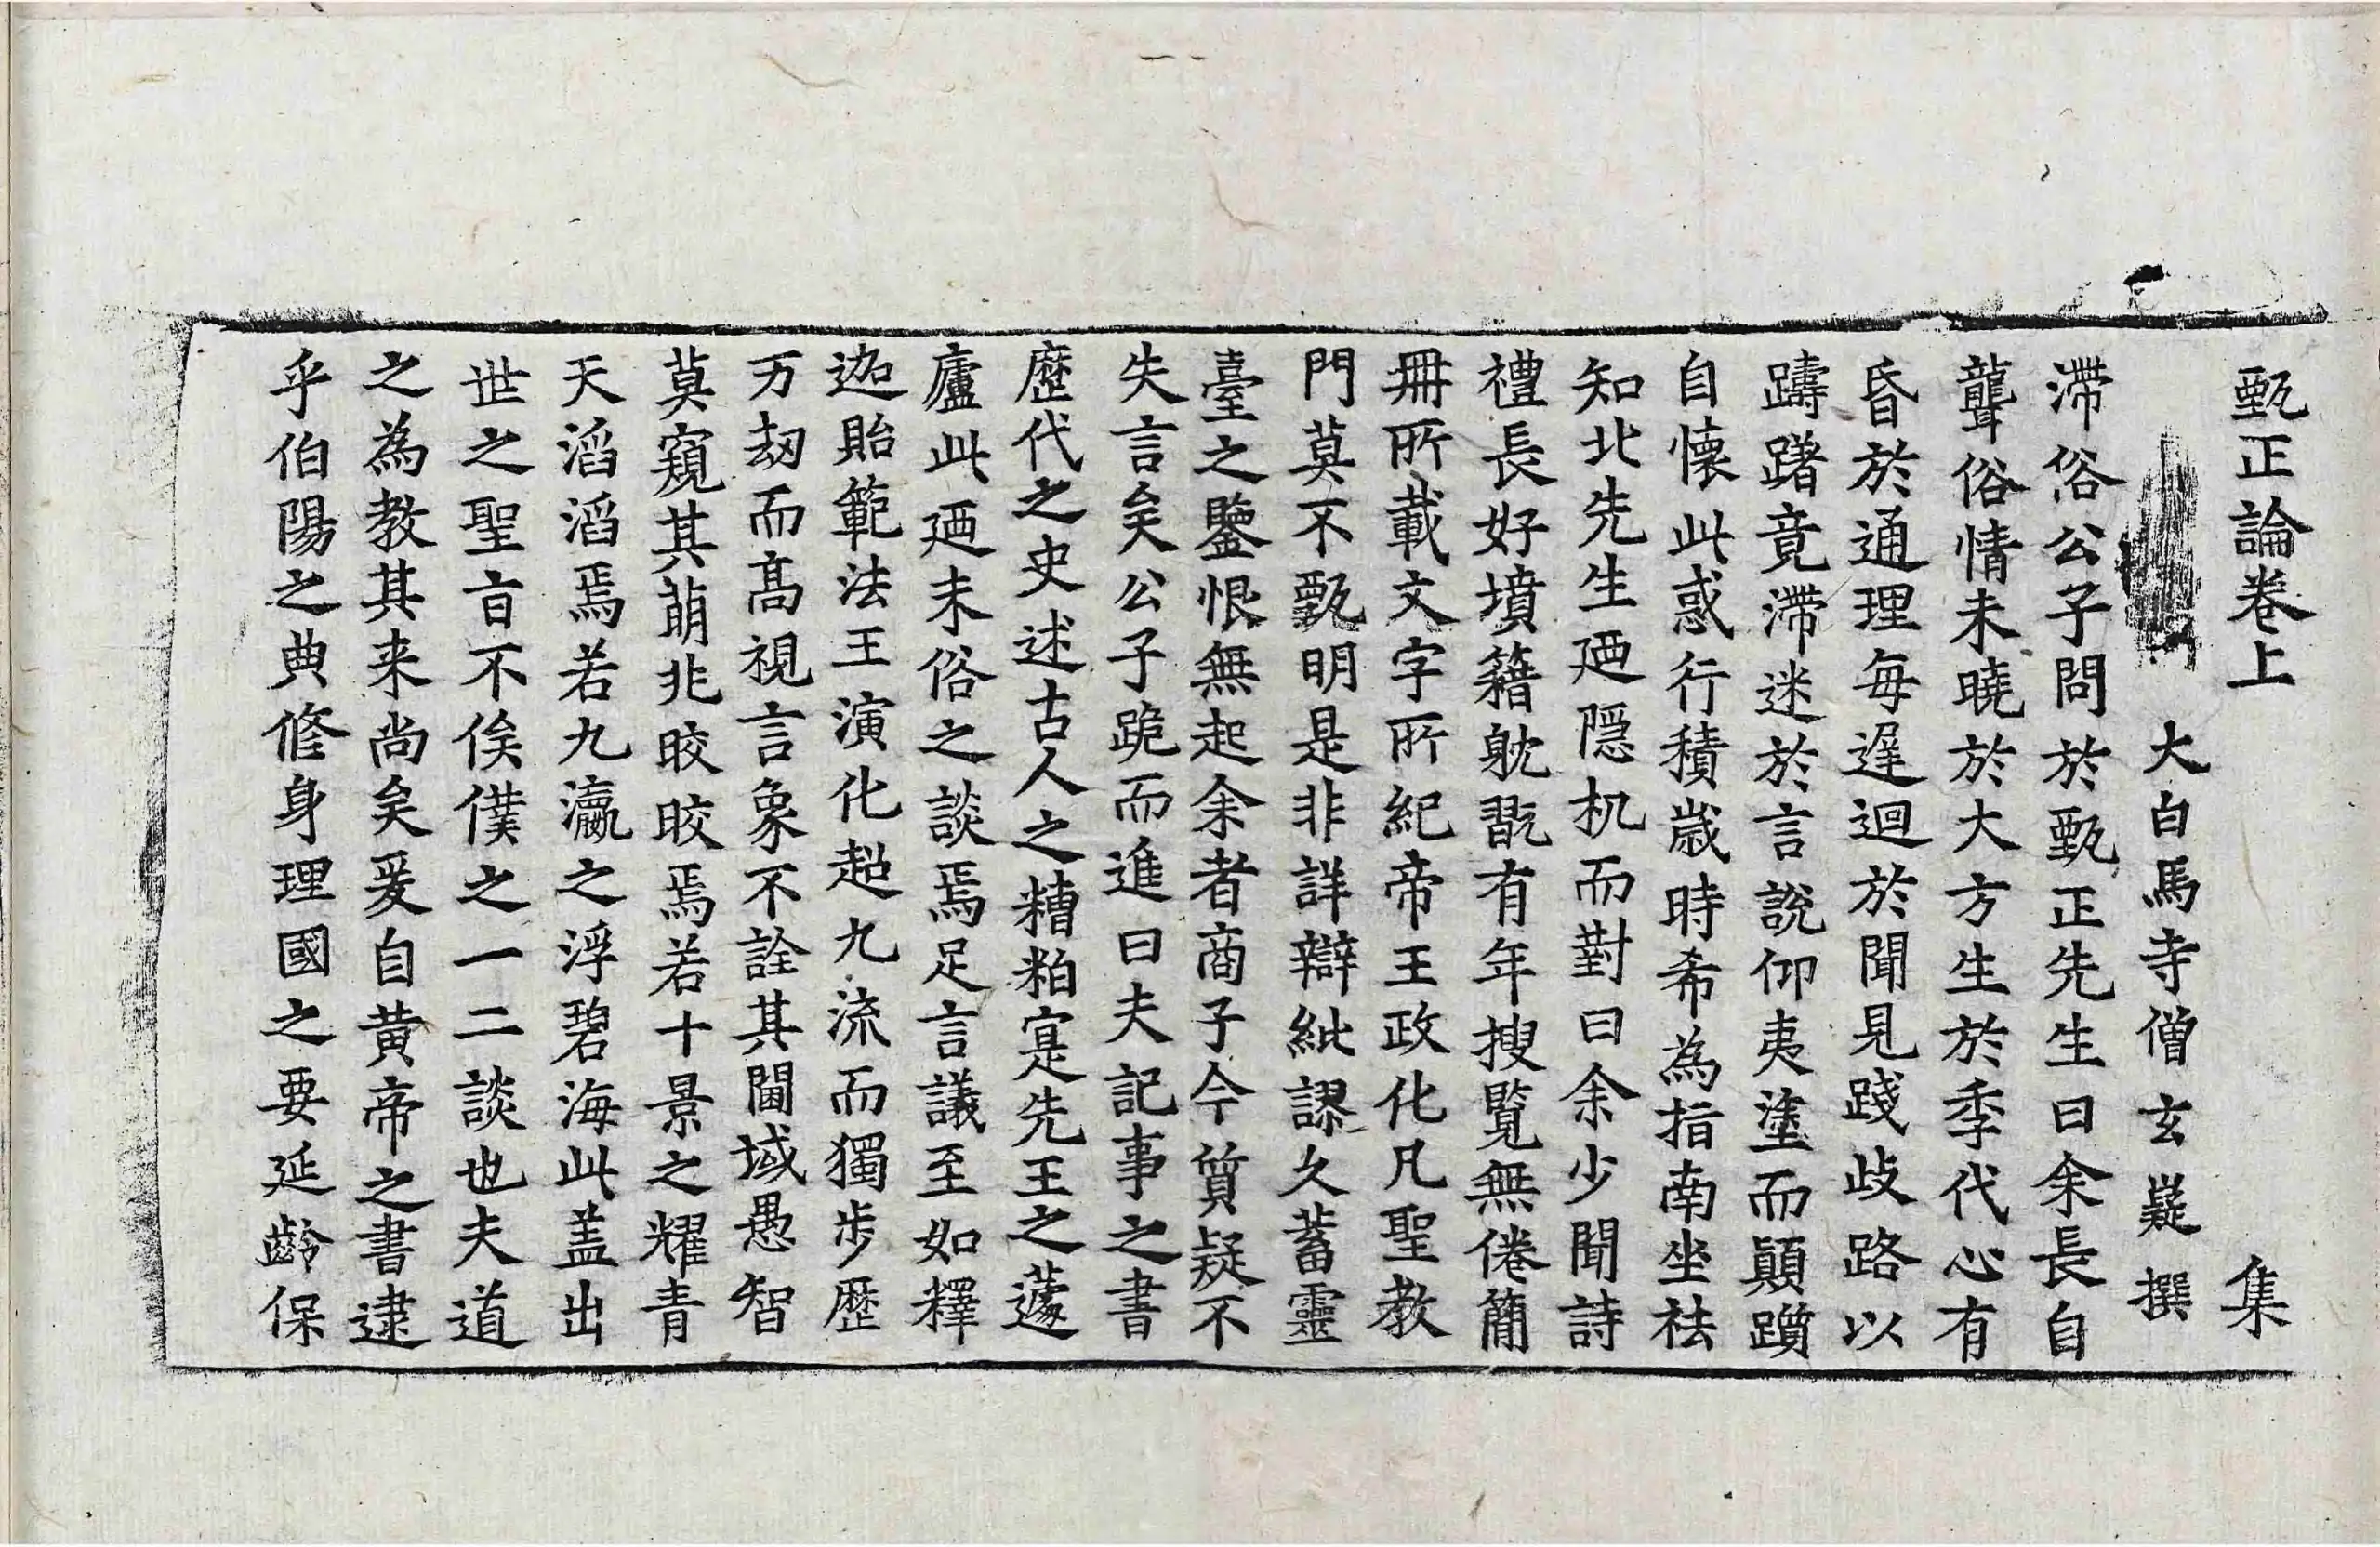 甄正論卷上　集
大白馬寺僧玄嶷撰
滯俗公子問於甄正先生曰余長自
聾俗情未曉於大方生於季代心有
昏於通理每遅迴於聞見踐歧路以
躊躇竟滯迷於言說仰夷塗而顛躓
自懷此惑行積歲時希為指南坐祛
知北先生廼隠机而對曰余少聞詩
禮長好墳籍躭翫有年搜覽無倦簡
冊所載文字所紀帝王政化凡聖教
門莫不甄明是非詳辯紕謬久蓄靈
臺之鑒恨無起余者商子今質疑不
失言矣公子跪而進曰夫記事之書
歷代之史述古人之糟粕寔先王之蘧
廬此廼末俗之談焉足言議至如釋
迦貽範法王演化超九流而獨步歷
万劫而髙視言象不詮其閫域愚智
莫窺其萌兆皎皎焉若十景之耀青
天滔滔焉若九瀛之浮碧海此盖出
世之聖旨不俟僕之一二談也夫道
之為教其来尚矣爰自黃帝之書逮
乎伯陽之典修身理國之要延齡保